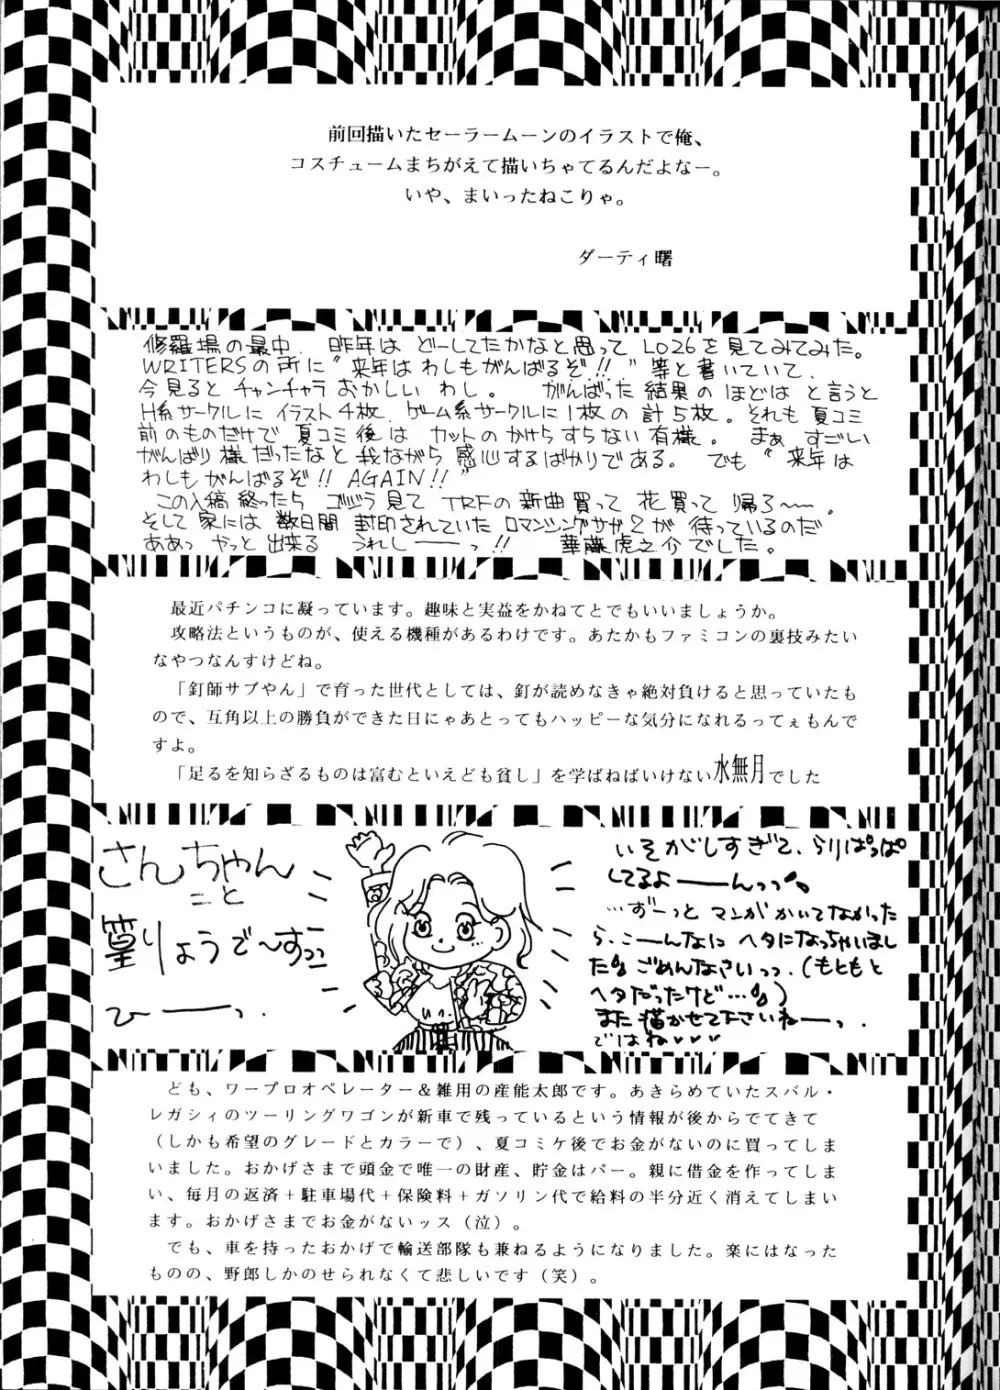 前回描いたセーラームーンのイラストで俺、
コスチュームまちがえて描いちゃてるんだよなー。
いや、まいったねこりゃ。
ダーティ曙
修羅場の最中、昨年はどーしてたかなと思ってLO26を見てみてみた。
WRITERSの所に"来年はわしもがんばるぞ!!"等と書いていて、
今見るとチャンチャラおかしいわし。 がんばった結果のほどはと言うと
H系サークルにイラスト4枚、ゲーム系サークルに1枚の計5枚。それも夏コミ
前のものだけで夏コミ後はカットのかけらすらない有様。まぁすごーい
がんばり様だったなと我ながら感心するばかりである。 でも"来年は
わしもがんばるぞ!! AGAIN!!"
この入稿終ったらゴジラ見てTRFの新曲買って花買って帰ろ〜。
そして家には数日間封印されていたロマンシングサガ2が待っているのだ
ああっやっと出来るうれしーーっ!! 華藤虎之介でした。
最近パチンコに凝っています。趣味と実益をかねてとでもいいましょうか。
攻略法というものが、使える機種があるわけです。あたかもファミコンの裏技みたい
なやつなんすけどね。
「釘師サブやん」で育った世代としては、釘が読めなきゃ絶対負けると思っていたも
ので、互角以上の勝負ができた日にゃあとってもハッピーな気分になれるってぇもんで
すよ。
「足るを知らざるものは富むといえども貧し」を学ばねばいけない水無月でした
さんちゃん
こと
篁りょうで〜すっっ
ひーーっ、
いそがしすぎて、らりぱっぱ
してるよーーんっっ
…ずーっとマンガかいてなかった
ら、こーんなにヘタになっちゃいまし
た ごめんなさいっっ、(もともと
ヘタだったけど…)
また描かせて下さいねーーっ、
ではね♥♥♥
ども、ワープロオペレーター＆雑用の産能太郎です。あきらめていたスバル・
レガシィのツーリングワゴンが新車で残っているという情報が後からでてきて
（しかも希望のグレードとカラーで）、夏コミケ後でお金がないのに買ってしま
いました。おかげさまで頭金で唯一の財産、貯金はパー。親に借金を作ってしま
い、毎月の返済＋駐車場代＋保険料＋ガソリン代で給料の半分近く消えてしまい
ます。おかげさまでお金がないッス（泣）。
でも、車を持ったおかげで輸送部隊も兼ねるようになりました。楽にはなった
ものの、野郎しかのせられなくて悲しいです（笑）。